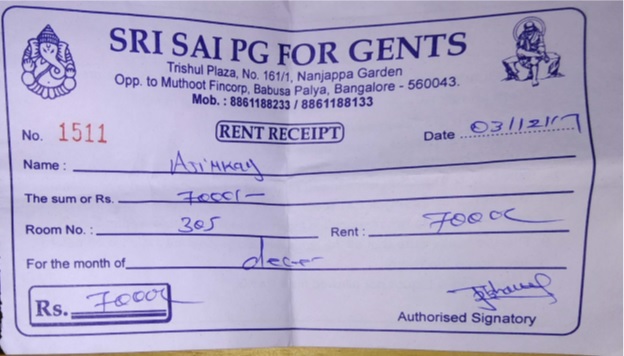 SRI SAI PG FOR GENTS
Trishul Plaza, No. 161/1, Nanjappa Garden
Opp. to Muthoot Fincorp, Babusa Palya, Bangalore - 560043.
Mob. : 8861188233 / 8861188133
No. 1511 RENT RECEIPT Date 03/12/17
Name :
The sum or Rs. 7000/-
Room No. : 305 Rent :
For the month of
Rs.
Authorised Signatory